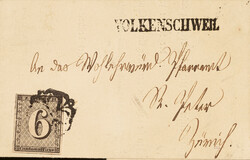 VOLKENSCHWEIL
An das Wohlehrwürd. Pfarramt
St. Peter
Zürich.
6